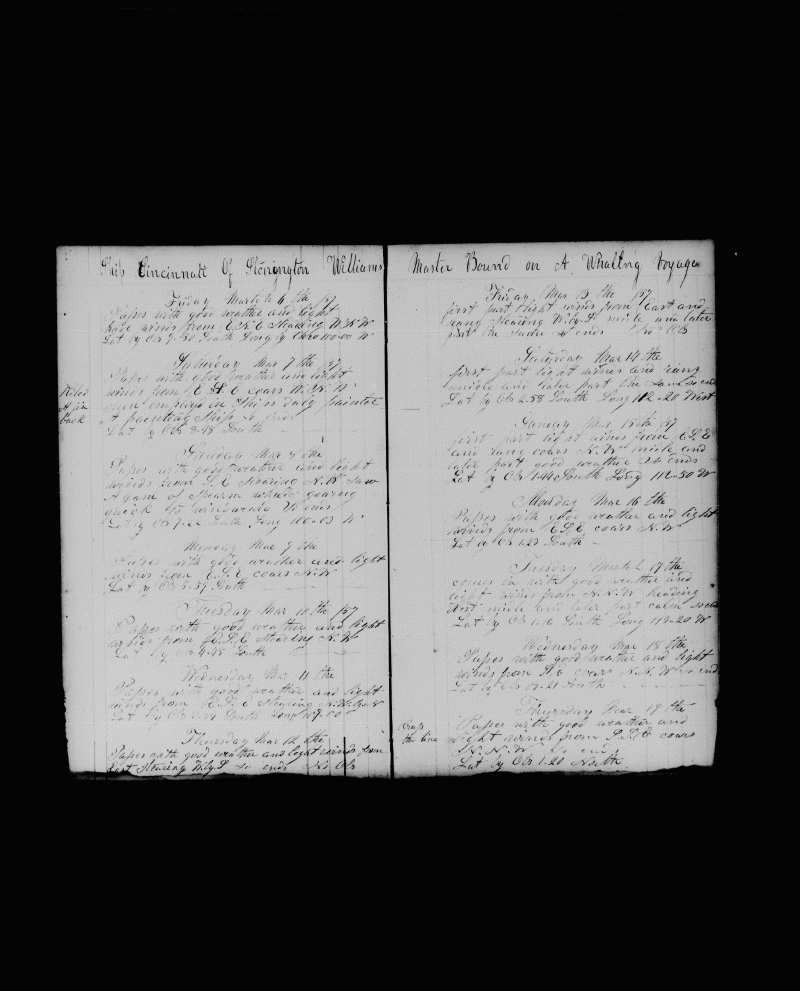 Ship Cincinnati Of Stonington Williams
Friday March 6 the 57
Passes with good weather and light
winds from E S E Stearing W N W
Lat by Obs South Long by Chro
Saturday Mar 7 the 57
Passes with good weather and light
winds from E S E coars W N W
men employed in Ships duty painted
painting Ship
Lat by Obs 8-48 South
Kiled
A fin
back
Sunday Mar 8 the
Passes with good weather and light
winds from S E Stearing N.W Saw
A gam of Spearm whales goaring
quick to windward So ends
Lat by Obs 7-22 South Long 106-03 W
Monday Mar 9 the
Passes with good weather and light
winds from E.S.E coars N.W
Lat by Obs South
Tuesday Mar 10 the 57
Passes with good weather and light
winds from E.S.E Stearing N.W
Lat by Obs 4-48 South
Wednesday Mar 11 the
Passes with good weather and light
winds from E.S.E Stearing
Lat by Obs South Long 109-00
Thursday Mar 12 the
Passes with good weather and light winds from
East Stearing W.by.S So ends No Obs
Master Bound on A Whalling Voyage
Friday Mar 13 the 57
first part light winds from East and
rang Stearing W.by.S midle and later
part the Same So ends No Obs
Saturday Mar 14 the
first part light winds and rang
midle and later part the Same so ends
Lat by Obs 2-58 South Long 112-20 West
Sunday Mar 15 the 57
first part light winds from E.S.E
and rang coars N.W midle and
later part good weather So ends
Lat by Obs 1-44 South Long 112-50 W
Monday Mar 16 the
Passes with good weather and light
winds from E.S.E coars N.W
Lat by Obs 1-23 South
Tuesday March 17 the
comes in with good weather and
light winds from N.N.W heading
West midle and later part calm so ends
Lat by Obs 1-16 South Long 113-20 W
Wednesday Mar 18 the
Passes with good weather and light
winds from S.E coars N.N.W so ends
Lat by Obs 00-21 South
Thursday Mar 19 the
Cross
the line
Passes with good weather and
light winds from S.S.E coars
N.N.W So ends
Lat by Obs 1-20 North